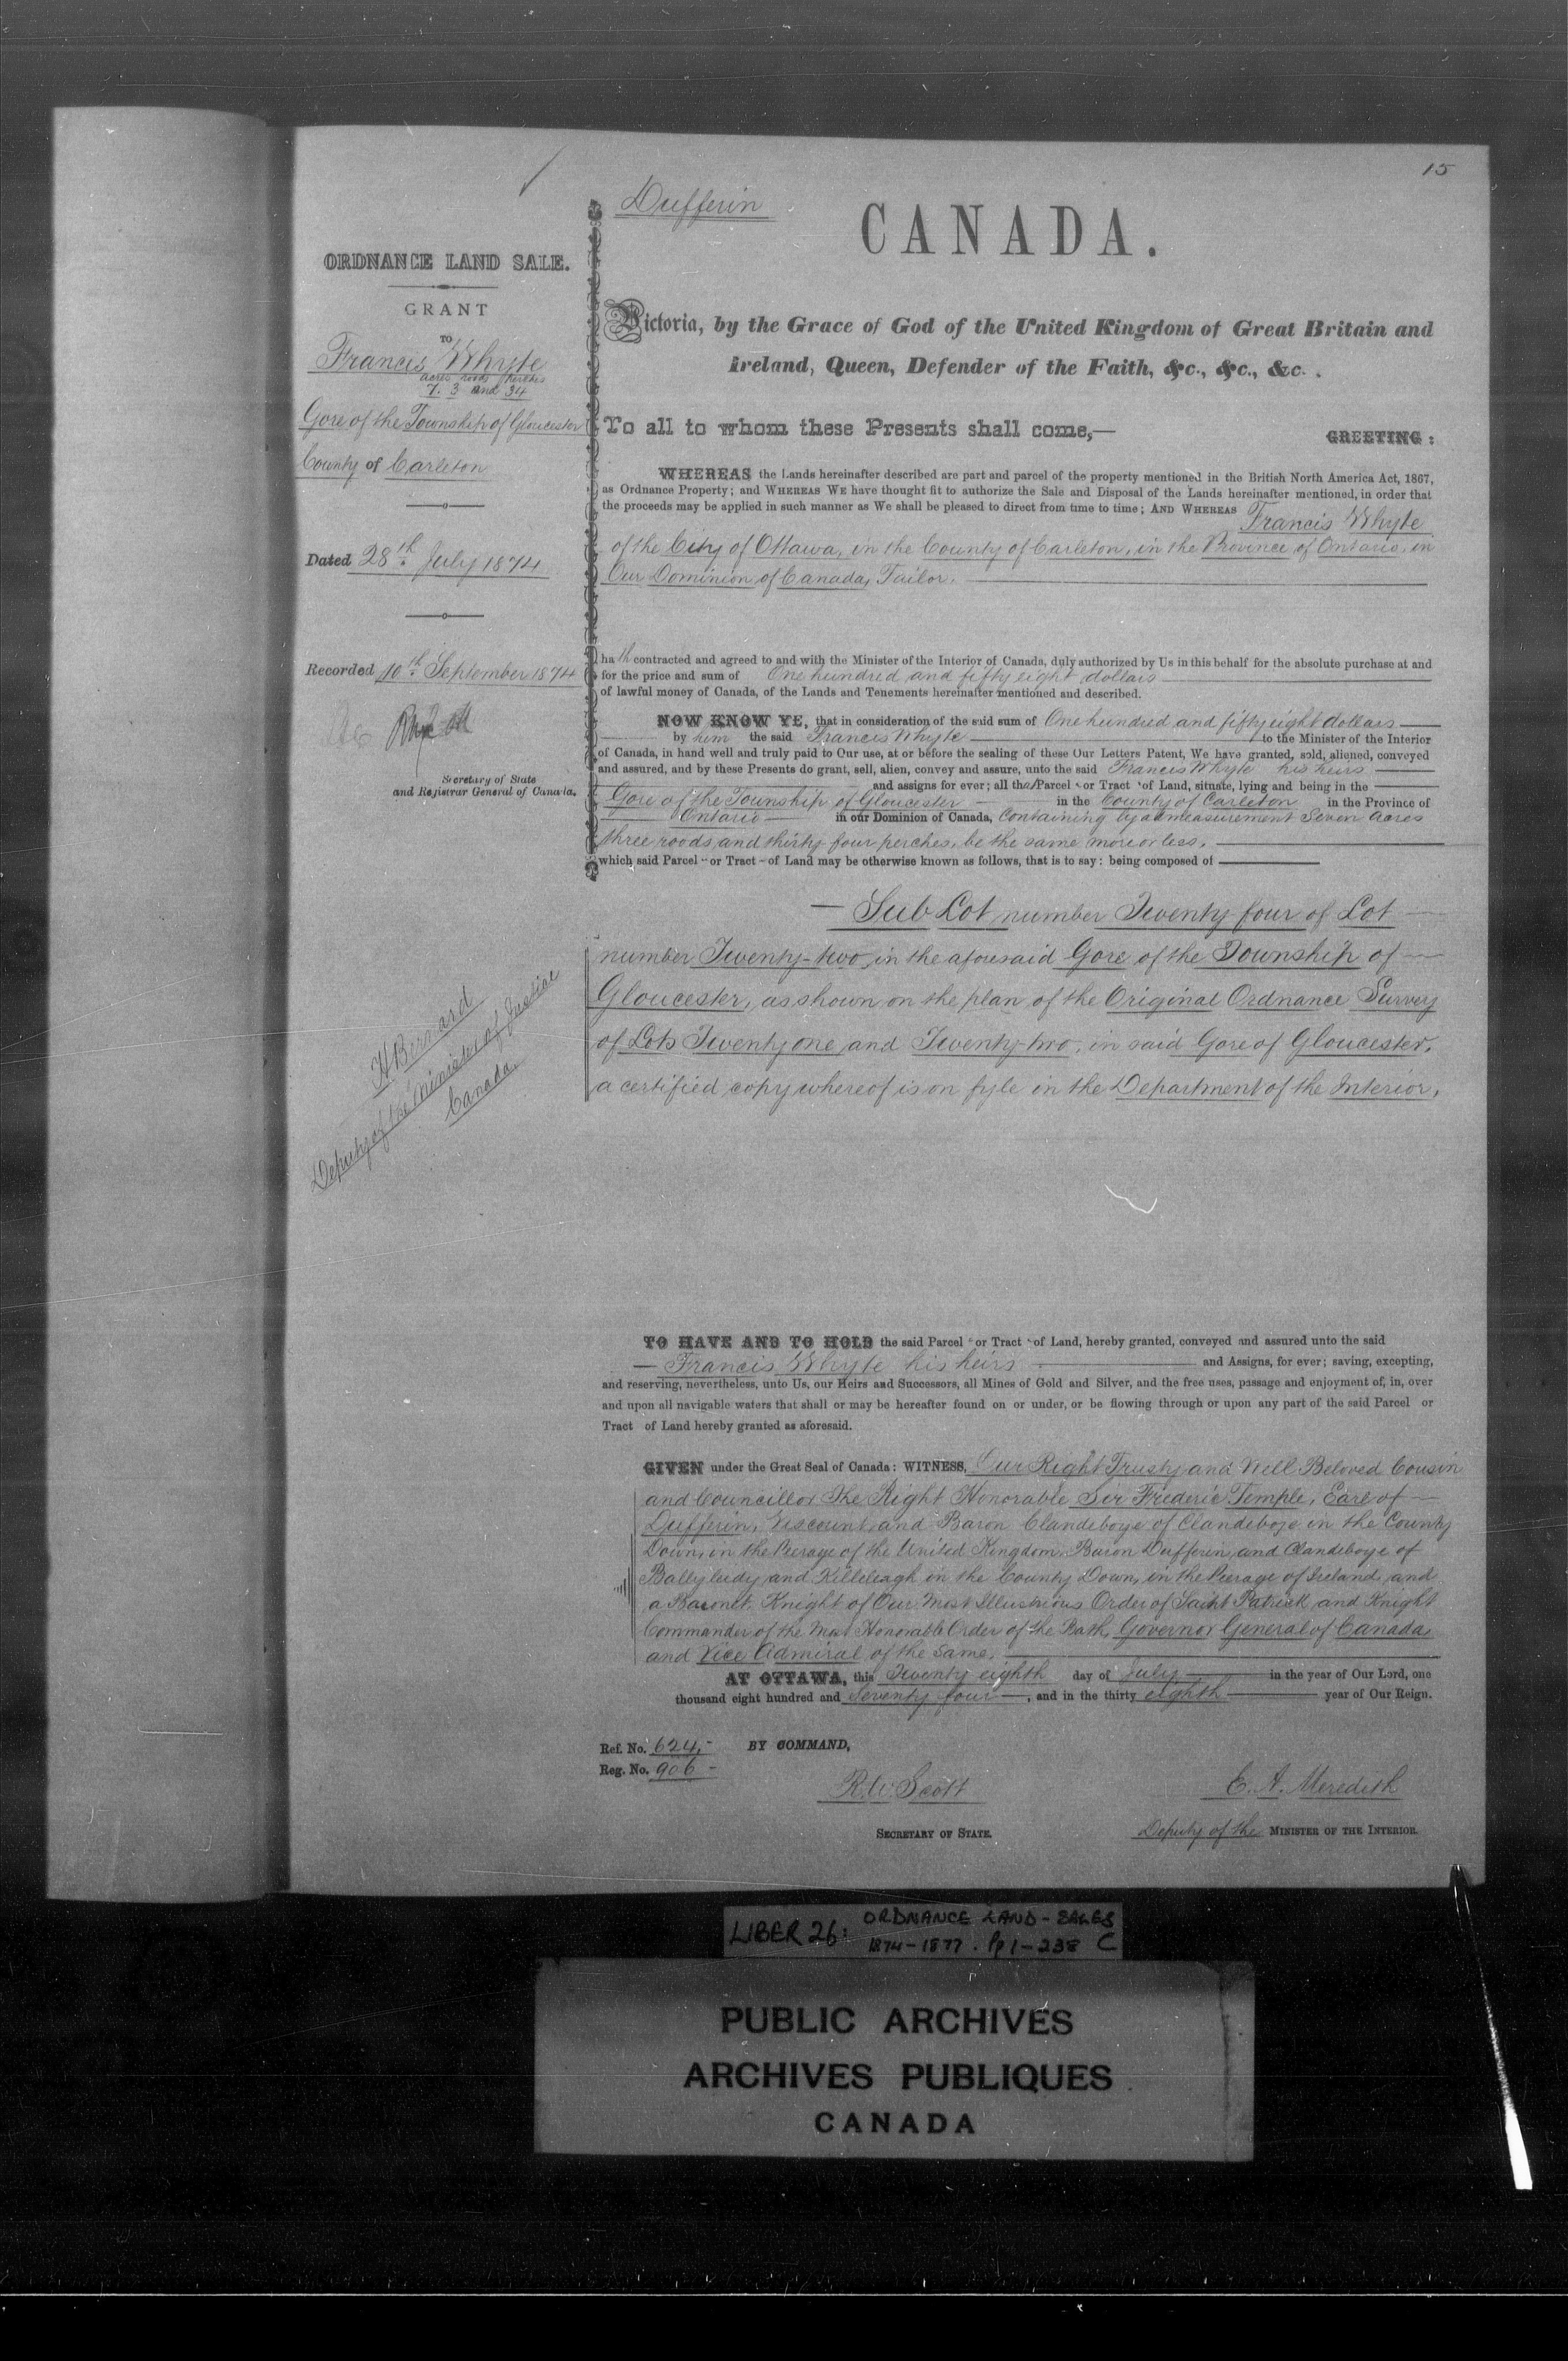 15
Dufferin
CANADA.
ORDNANCE LAND SALE.
GRANT
TO
Francis Whyte
acres roods perches
7. 3 and 34
Gore of the Township of Gloucester
County of Carleton
Dated 28th July 1874
Recorded 10th September 1874
Secretary of State
and Registrar General of Canada.
H Bernard
Deputy of the Minister of Justice
Canada.
Victoria, by the Grace of God of the United Kingdom of Great Britain and
Ireland, Queen, Defender of the Faith, &c., &c., &c.
To all to whom these Presents shall come,—
GREETING:
WHEREAS the Lands hereinafter described are part and parcel of the property mentioned in the British North America Act, 1867,
as Ordnance Property; and WHEREAS WE have thought fit to authorize the Sale and Disposal of the Lands hereinafter mentioned, in order that
the proceeds may be applied in such manner as We shall be pleased to direct from time to time; AND WHEREAS Francis Whyte
of the City of Ottawa, in the County of Carleton, in the Province of Ontario, in
Our Dominion of Canada, Tailor.
hath contracted and agreed to and with the Minister of the Interior of Canada, duly authorized by Us in this behalf for the absolute purchase at and
for the price and sum of One hundred and fifty eight dollars
of lawful money of Canada, of the Lands and Tenements hereinafter mentioned and described.
NOW KNOW YE, that in consideration of the said sum of One hundred and fifty eight dollars
by him the said Francis Whyte to the Minister of the Interior
of Canada, in hand well and truly paid to Our use, at or before the sealing of these Our Letters Patent, We have granted, sold, aliened, conveyed
and assured, and by these Presents do grant, sell, alien, convey and assure, unto the said Francis Whyte his heirs
and assigns for ever; all that Parcel or Tract of Land, situate, lying and being in the
Gore of the Township of Gloucester in the County of Carleton in the Province of
Ontario in our Dominion of Canada, Containing by admeasurement Seven Acres
three roods and thirty four perches, be the same more or less,
which said Parcel or Tract of Land may be otherwise known as follows, that is to say: being composed of
— Sub Lot number Twenty four of Lot
number Twenty-two, in the aforesaid Gore of the Township of
Gloucester, as shown on the plan of the Original Ordnance Survey
of Lots Twenty one and Twenty-two, in said Gore of Gloucester,
a certified copy whereof is on fyle in the Department of the Interior,
TO HAVE AND TO HOLD the said Parcel or Tract of Land, hereby granted, conveyed and assured unto the said
— Francis Whyte his heirs and Assigns, for ever; saving, excepting,
and reserving, nevertheless, unto Us, our Heirs and Successors, all Mines of Gold and Silver, and the free uses, passage and enjoyment of, in, over
and upon all navigable waters that shall or may be hereafter found on or under, or be flowing through or upon any part of the said Parcel or
Tract of Land hereby granted as aforesaid.
GIVEN under the Great Seal of Canada: WITNESS, Our Right Trusty and Well Beloved Cousin
and Councillor The Right Honorable Sir Frederic Temple, Earl of
Dufferin, Viscount and Baron Clandeboye of Clandeboye in the County
Down, in the Peerage of the United Kingdom, Baron Dufferin and Clandeboye of
Ballyleidy and Killeleagh in the County Down, in the Peerage of Ireland, and
a Baronet, Knight of Our Most Illustrious Order of Saint Patrick and Knight
Commander of the Most Honorable Order of the Bath, Governor General of Canada,
and Vice Admiral of the same,
AT OTTAWA, this Twenty eighth day of July in the year of Our Lord, one
thousand eight hundred and Seventy four, and in the thirty eighth year of Our Reign.
Ref. No. 624,-
BY COMMAND,
Reg. No. 906 -
R. W. Scott
E. A. Meredith
SECRETARY OF STATE.
Deputy of the MINISTER OF THE INTERIOR.
LIBER 26: ORDNANCE LAND-SALES
1874-1877. Pp 1-238 C
PUBLIC ARCHIVES
ARCHIVES PUBLIQUES
CANADA